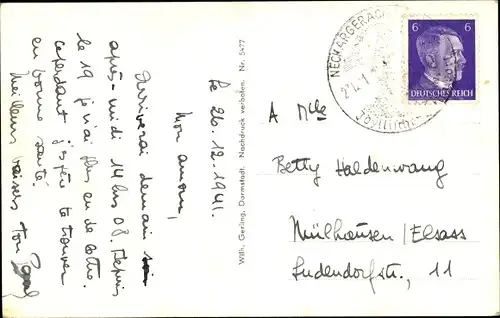 Le 26.12.1941.
Mon amour,
Arriverai demain
après-midi 14 hrs 08. Depuis
le 19 j'ai plus eu de lettre.
cependant j'espère te trouver
en bonne santé.
Meilleurs baisers ton
Wilh. Gerling, Darmstadt. Nachdruck verboten. Nr. 5477
NECKARGERACH
6 6
DEUTSCHES REICH
A Mlle
Betty Haldenwang
Mülhausen/Elsass
Ludendorfstr., 11